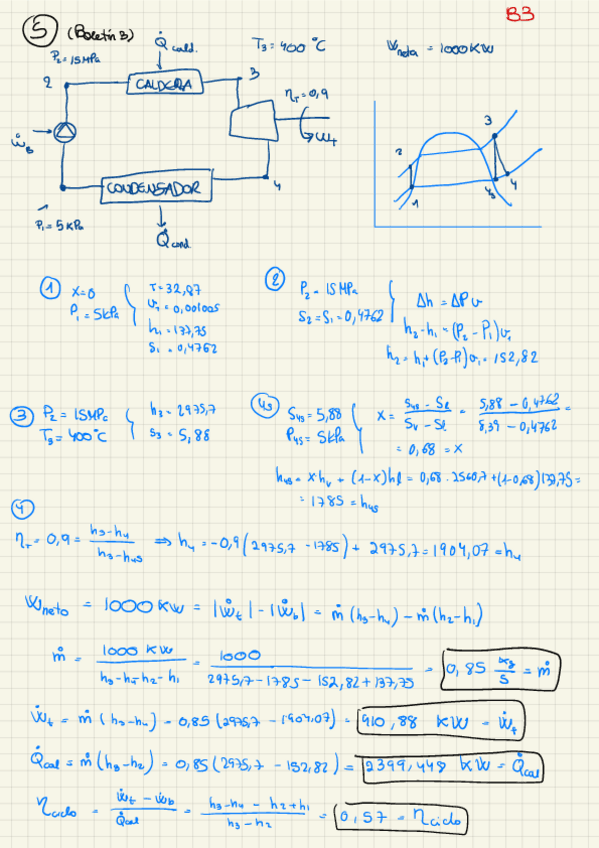 B3
5 (Boletín B)
Q̇cald.
T3 = 400 °C
Ẇneta = 1000 KW
P2 = 15 MPa
2
CALDERA
3
ηT = 0,9
ẆB
Ẇt
CONDENSADOR
4
P1 = 5 KPa
Q̇cond.
3
2
1
4s
4
1
x = 0
P1 = 5 kPa
T = 32,87
v1 = 0,001005
h1 = 137,75
s1 = 0,4762
2
P2 = 15 MPa
S2 = S1 = 0,4762
Δh = ΔP v
h2 - h1 = (P2 - P1) v1
h2 = h1 + (P2 - P1) v1 = 152,82
3
P2 = 15 MPa
T3 = 400 °C
h3 = 2975,7
s3 = 5,88
4s
S4s = 5,88
P4s = 5 kPa
x = (s4s - sl) / (sv - sl) = (5,88 - 0,4762) / (8,39 - 0,4762) =
= 0,68 = x
h4s = x hv + (1-x) hl = 0,68 · 2560,7 + (1-0,68) 137,75 =
= 1785 = h4s
4
ηT = 0,9 = (h3 - h4) / (h3 - h4s) ⇒ h4 = -0,9 (2975,7 - 1785) + 2975,7 = 1904,07 = h4
Ẇneto = 1000 KW = |Ẇt| - |Ẇb| = ṁ (h3 - h4) - ṁ (h2 - h1)
ṁ = 1000 KW / (h3 - h5 - h2 - h1) = 1000 / (2975,7 - 1785 - 152,82 + 137,75) = 0,85 kg/s = ṁ
Ẇt = ṁ (h3 - h4) = 0,85 (2975,7 - 1904,07) = 910,88 KW = Ẇt
Q̇cal = ṁ (h3 - h2) = 0,85 (2975,7 - 152,82) = 2399,448 KW = Q̇cal
ηciclo = (Ẇt - Ẇb) / Q̇cal = (h3 - h4 - h2 + h1) / (h3 - h2) = 0,57 = ηciclo